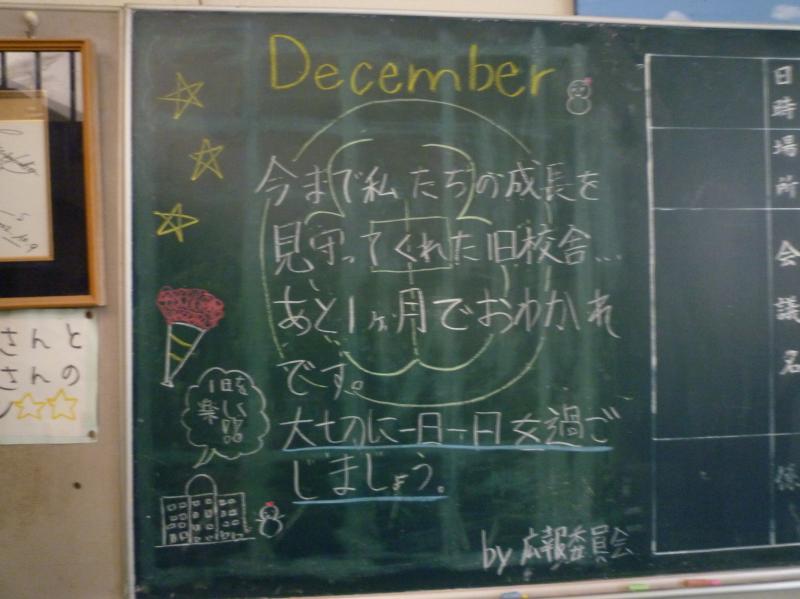 December
今まで私たちの成長を
見守ってくれた旧校舎...
あと1ヶ月でおわかれ
です。
大切に一日一日を過ご
しましょう。
by 広報委員会
1日を
楽しく!!
日時
場所
会議名
さんと
さんの